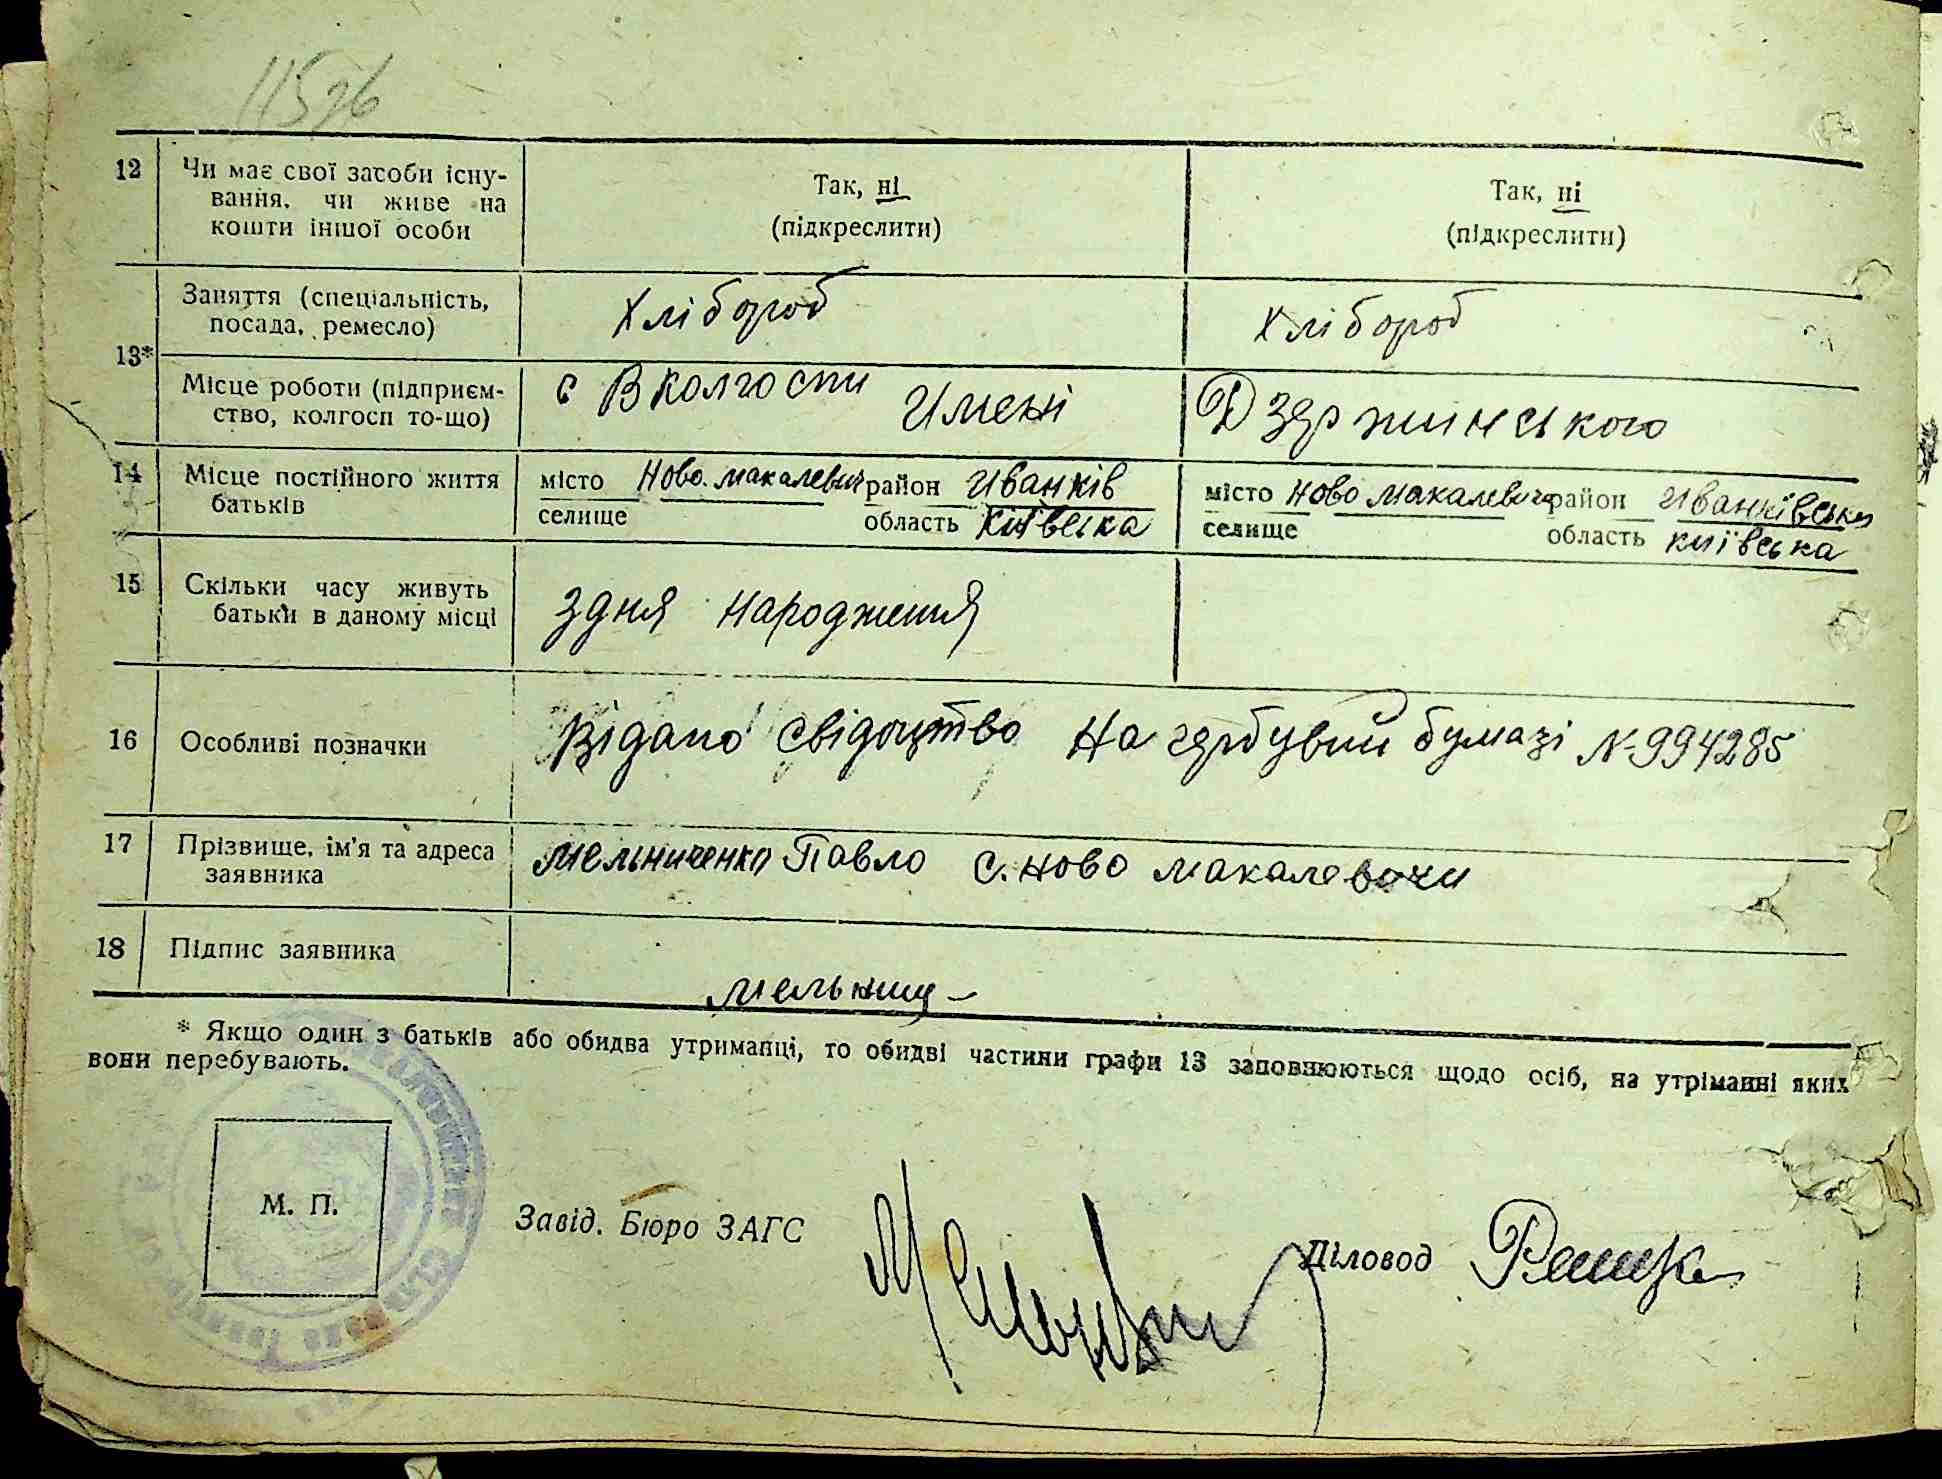 1526
12 Чи має свої засоби існу- Так, ні Так, ні
вання, чи живе на (підкреслити) (підкреслити)
кошти іншої особи
13* Заняття (спеціальність, Хлібороб Хлібороб
посада, ремесло)
Місце роботи (підприєм- с В колгоспи Имені Дзержинського
ство, колгосп то-що)
14 Місце постійного життя місто Ново.макалевич район Иванків місто Ново макалевичи район Иванківськи
батьків селище область Київська селище область київська
15 Скільки часу живуть здня народження
батьки в даному місці
16 Особливі позначки Відано свідоцтво На гербувий бумазі №994285
17 Прізвище, ім'я та адреса Мельниченко Павло С. Ново макалевичи
заявника
18 Підпис заявника
* Якщо один з батьків або обидва утриманці, то обидві частини графи 13 заповнюються щодо осіб, на утріманні яких
вони перебувають.
М. П.
Завід. Бюро ЗАГС Діловод